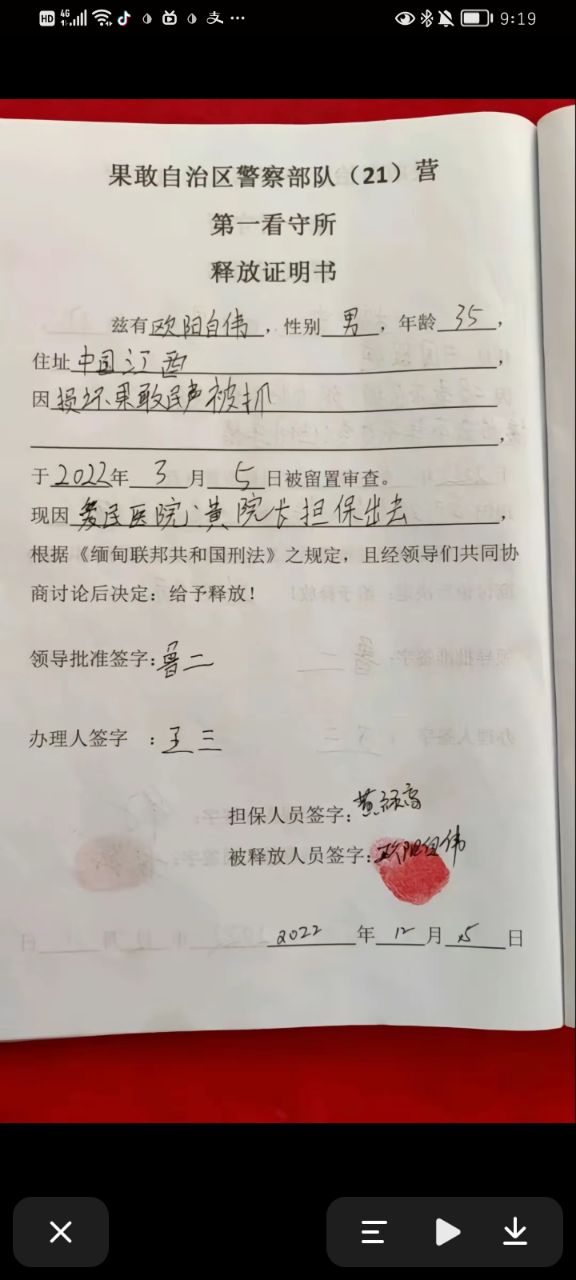 HD 4G 支 ... 9:19
果敢自治区警察部队（21）营
第一看守所
释放证明书
兹有欧阳自伟，性别 男，年龄 35，
住址中国江西，
因损坏果敢民声被抓
，
于2022年 3 月 5 日被留置审查。
现因爱民医院黄院长担保出去，
根据《缅甸联邦共和国刑法》之规定，且经领导们共同协
商讨论后决定：给予释放！
领导批准签字：鲁二
办理人签字 ：王三
担保人员签字：黄
被释放人员签字：欧阳自伟
2022 年 12 月 日